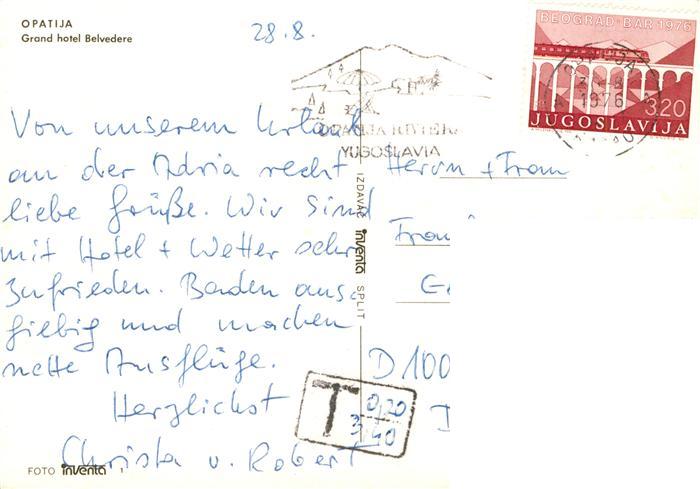 OPATIJA
Grand hotel Belvedere
28.8.
BEOGRAD-BAR 1976
3.20
JUGOSLAVIJA
1976
OPATIJA RIVIERA
YUGOSLAVIA
Von unserem Urlaub
an der Adria recht
liebe Grüße. Wir sind
mit Hotel + Wetter sehr
zufrieden. Baden aus-
giebig und machen
nette Ausflüge.
Herzlichst
Christa u. Robert
Herrn + Frau
Fran
G
D 100
T 0,20
3,40
IZDAVAČ inventa SPLIT
FOTO inventa